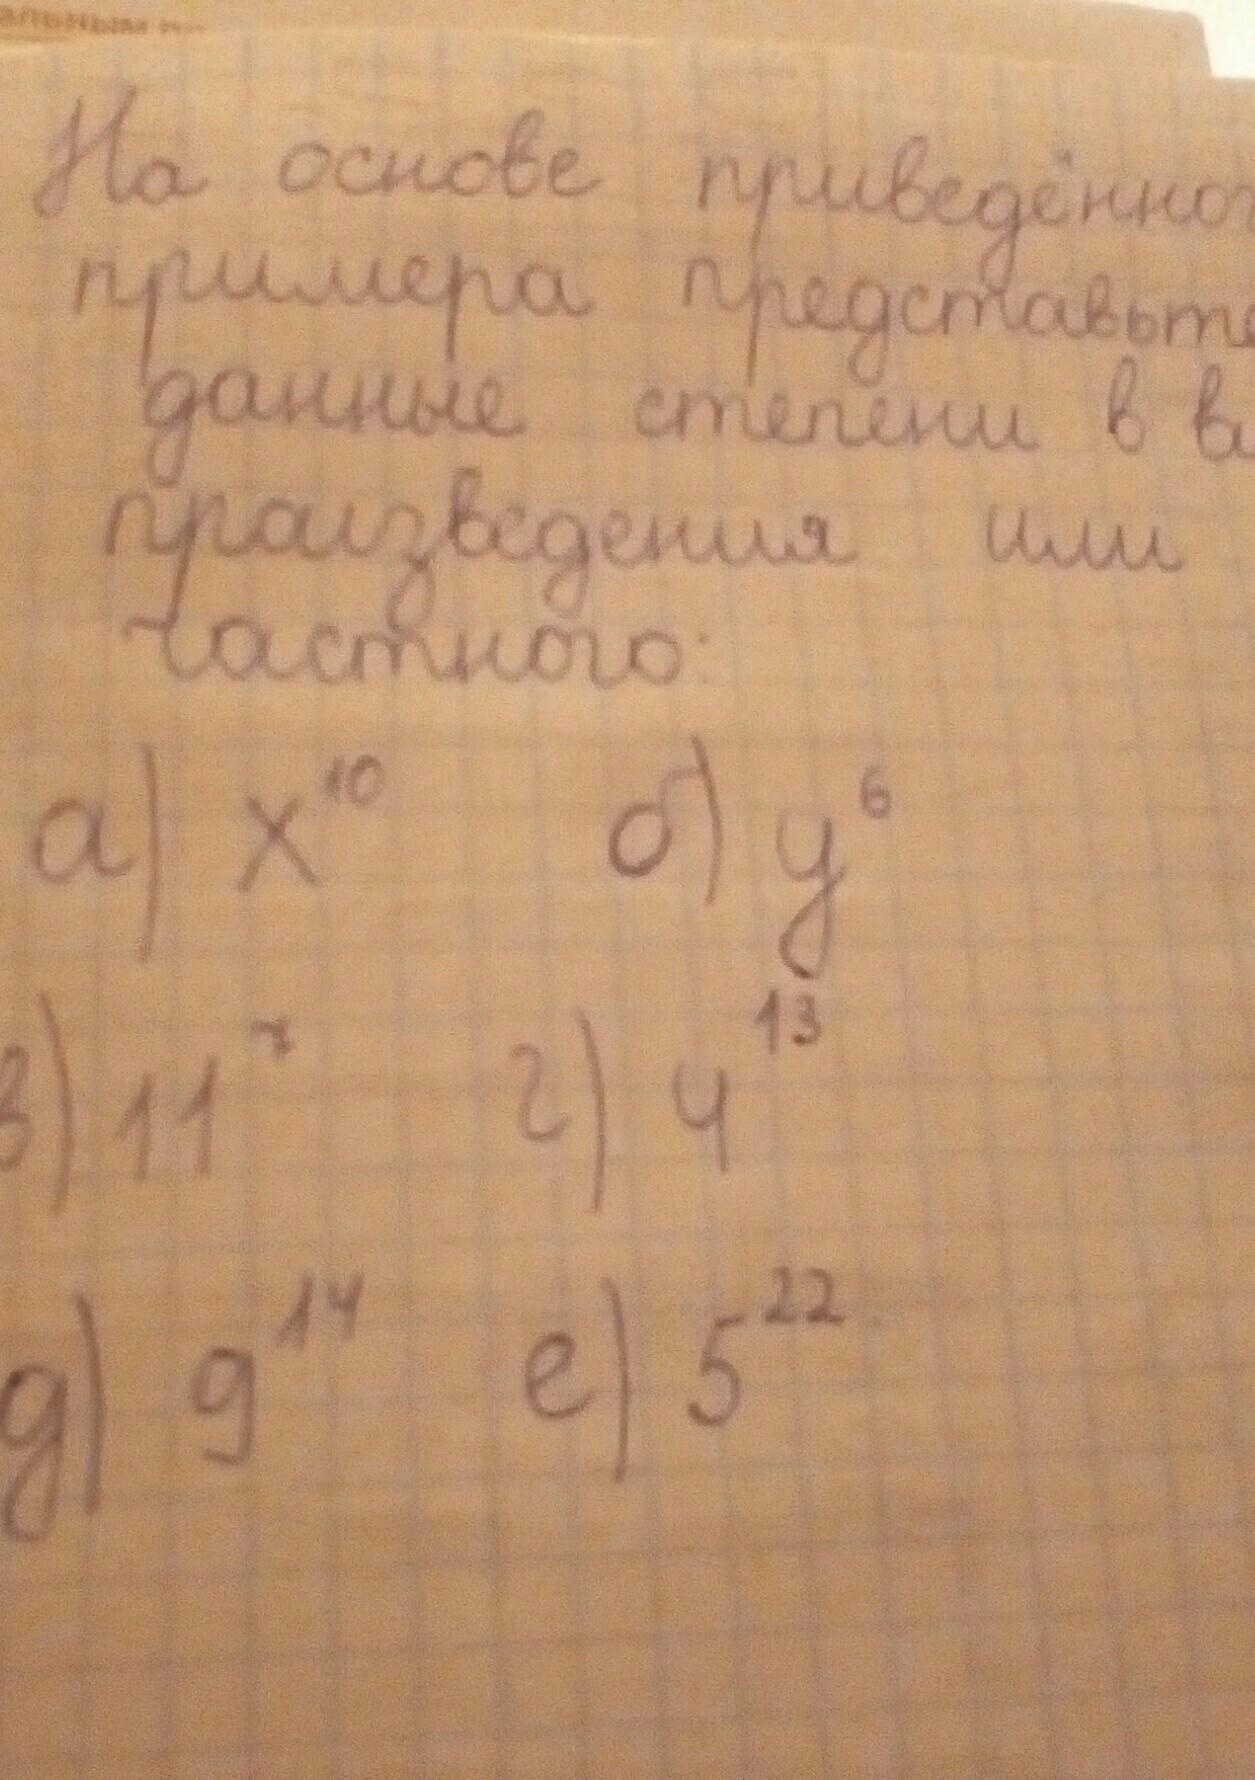 альным
На основе приведённог
примера представьте
данные степени в ви
произведения или
частного:
а) x¹⁰ б) y⁶
в) 11⁷ г) 4¹³
д) 9¹⁴ е) 5²²